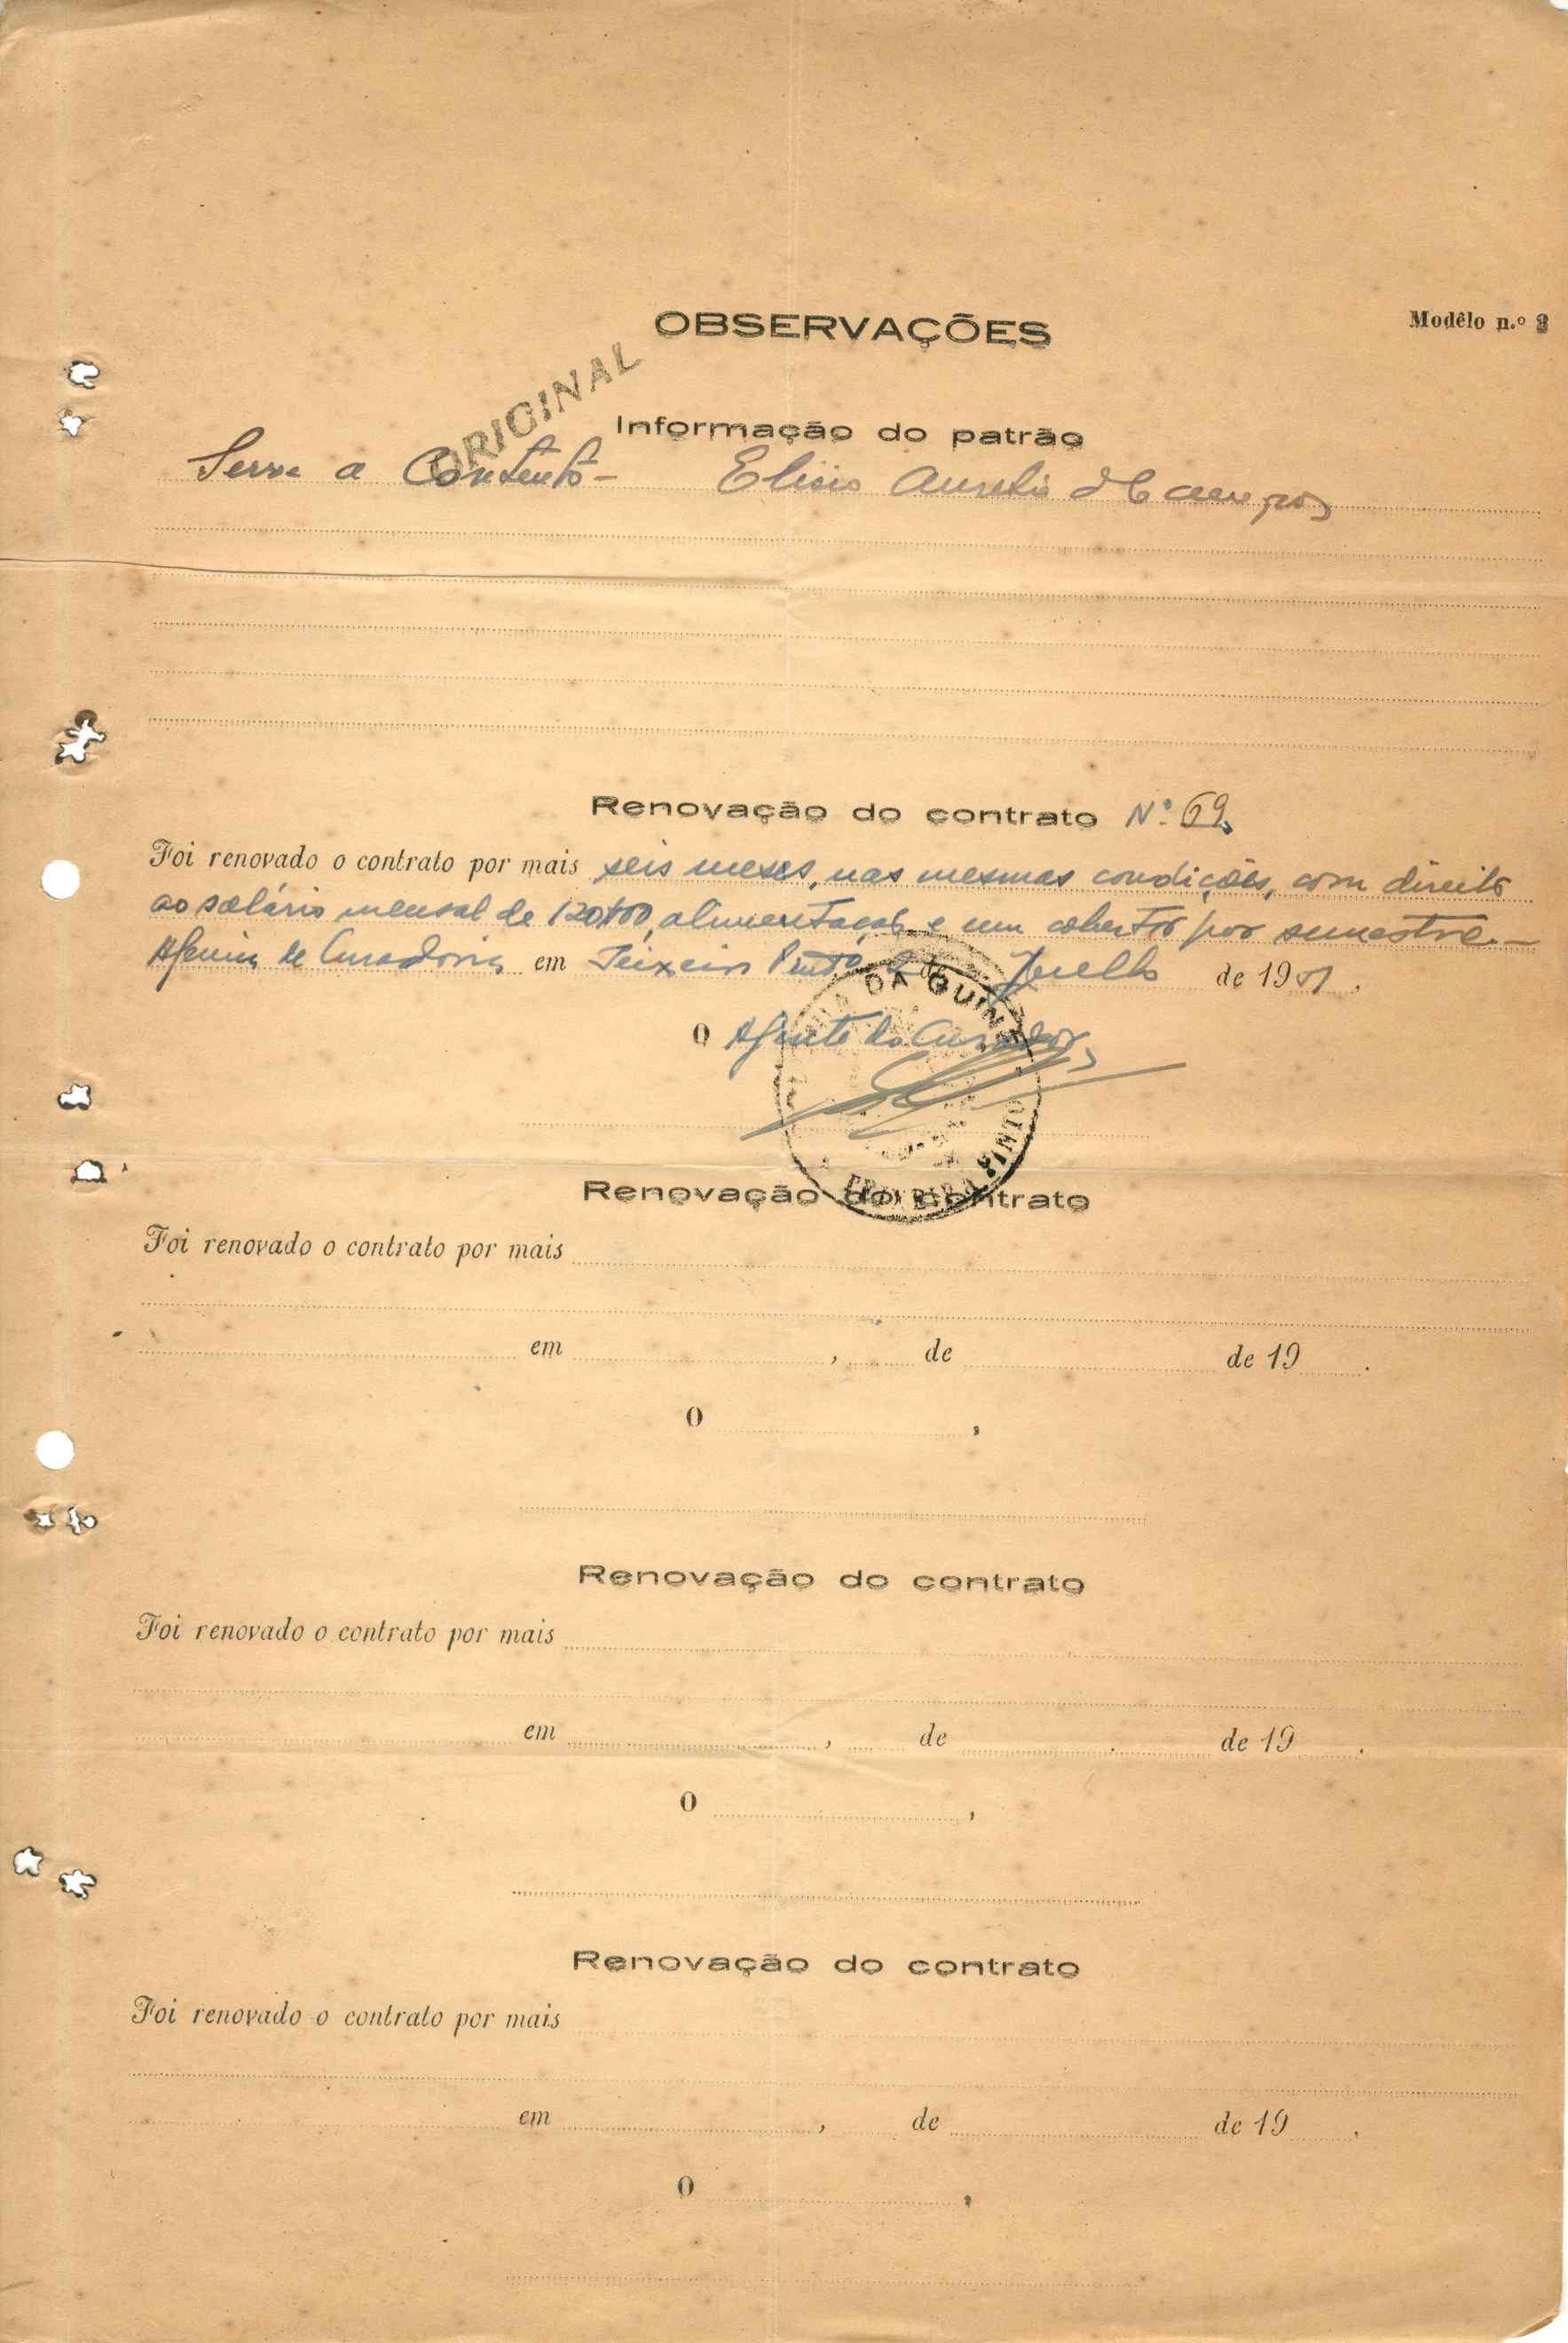 OBSERVAÇÕES
Modêlo n.º
ORIGINAL
Informação do patrão
Serve a Contento - Elisio Aurelio de Campos
Renovação do contrato Nº 69,
Foi renovado o contrato por mais seis meses, nas mesmas condições, com direito
ao salário mensal de 120$00, alimentação e um cobertor por semestre.—
Agencia de Curadoria em Teixeira Pinto, 2 de Julho de 1951.
O Agente do Curador,
DA GUINÉ
PINTO
Renovação do contrato
Foi renovado o contrato por mais
em , de de 19 .
O ,
Renovação do contrato
Foi renovado o contrato por mais
em , de de 19 .
O ,
Renovação do contrato
Foi renovado o contrato por mais
em , de de 19 .
O ,